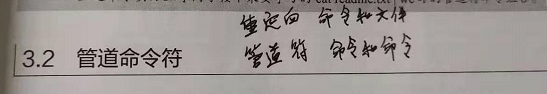 重定向 命令和文件
3.2 管道命令符
管道符 命令和命令